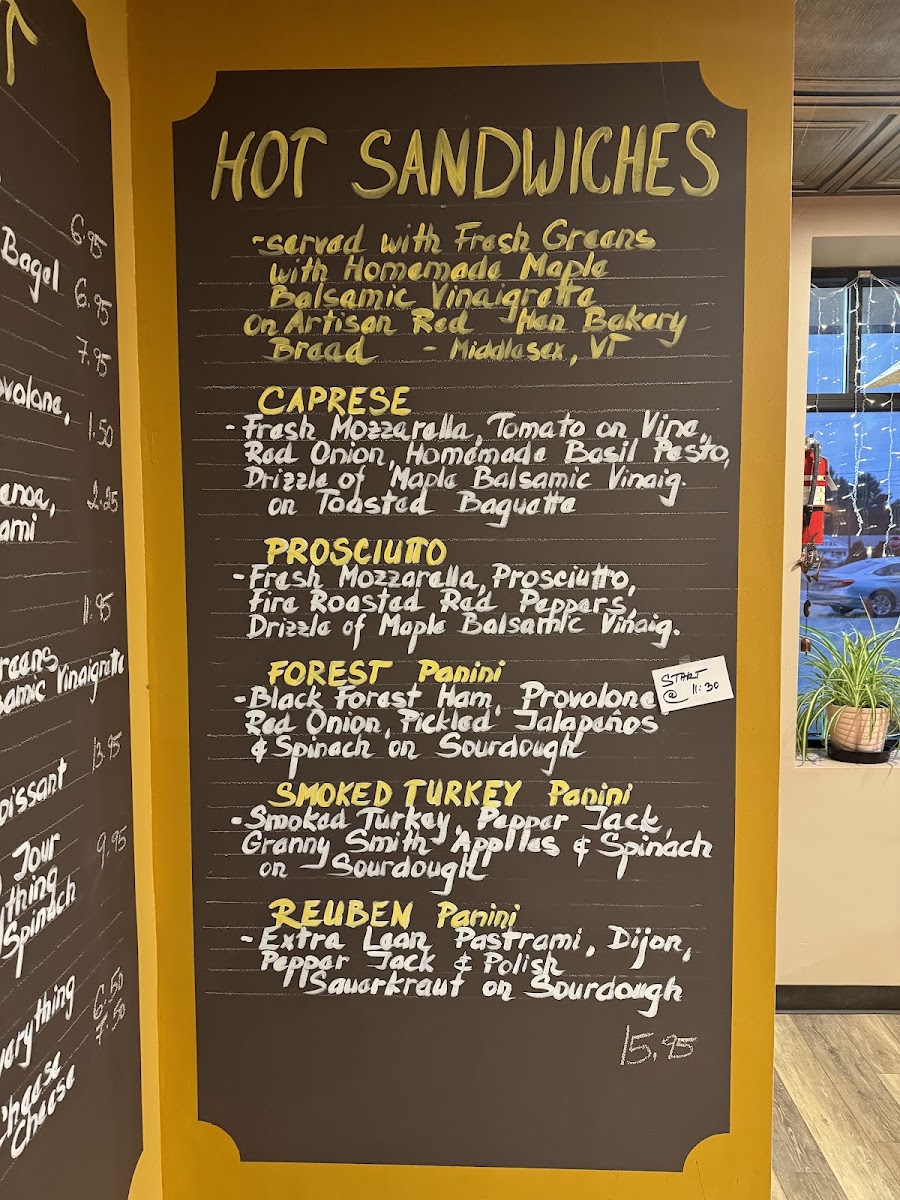 6.95
Bagel
6.95
7.95
1.50
2.25
ami
11.95
Vinaigrette
13.95
Jour
9.95
Spinach
6.50
7.50
Cheese
HOT SANDWICHES
-served with Fresh Greens
with Homemade Maple
Balsamic Vinaigrette
on Artisan Red Hen Bakery
Bread - Middlesex, VT
CAPRESE
- Fresh Mozzarella, Tomato on Vine,
Red Onion, Homemade Basil Pesto,
Drizzle of Maple Balsamic Vinaig.
on Toasted Baguette
PROSCIUTTO
- Fresh Mozzarella, Prosciutto,
Fire Roasted Red Peppers,
Drizzle of Maple Balsamic Vinaig.
FOREST Panini
- Black Forest Ham, Provolone
Red Onion, Pickled Jalapeños
& Spinach on Sourdough
START
@ 11:30
SMOKED TURKEY Panini
- Smoked Turkey, Pepper Jack,
Granny Smith Applles & Spinach
on Sourdough
REUBEN Panini
- Extra Lean Pastrami, Dijon,
Pepper Jack & Polish
Sauerkraut on Sourdough
15.95